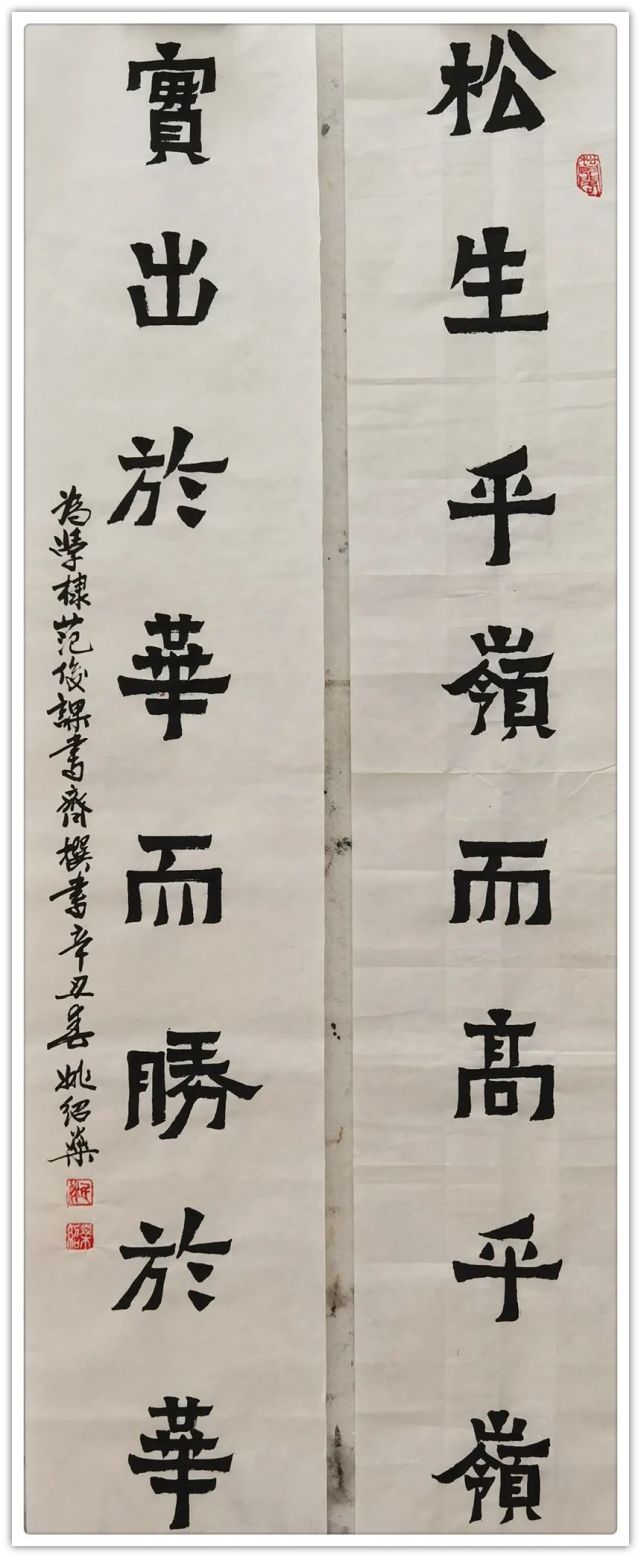 松生乎嶺而高乎嶺
實出於華而勝於華
為學棣范俊課書齋撰書辛丑春姚紹燊